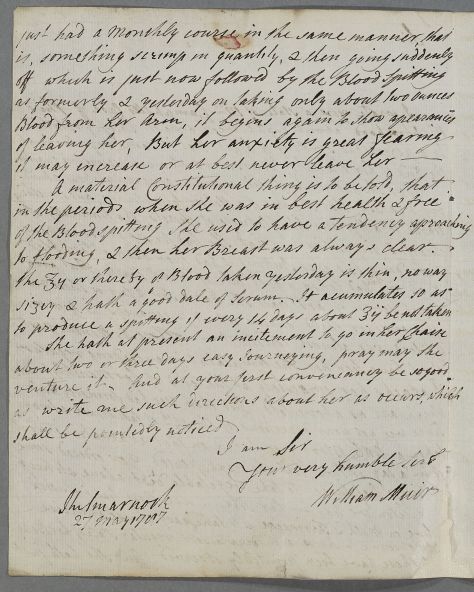 just had a monthly course in the same manner, that
is, something scrimp in quantity, & then going suddenly
off which is just now followed by the Blood spitting
as formerly & yesterday on taking only about two ounces
Blood from her Arm, it begins again to show apearances
of leaving her, But her anxiety is great fearing
it may increase or at best never leave her —
A material Constitutional thing is to be told, that
in the periods when she was in best health & free
of the Blood spitting She used to have a tendency aproaching
to flooding, & then her Breast was always clear.
the or thereby of Blood taken yesterday is thin, no way
sizy & hath a good dale of serum. It acumulates so as
to produce a spitting if every 14 days about be not taken
She hath at present an incitement to go in her Chaise
about two or three days easy Journeying, pray may she
venture it – And at your first conveniancy be so good
as write me such directions about her as occurs, which
shall be pointedly noticed
I am Sir
Your very humble Servt
William Muir
27 May